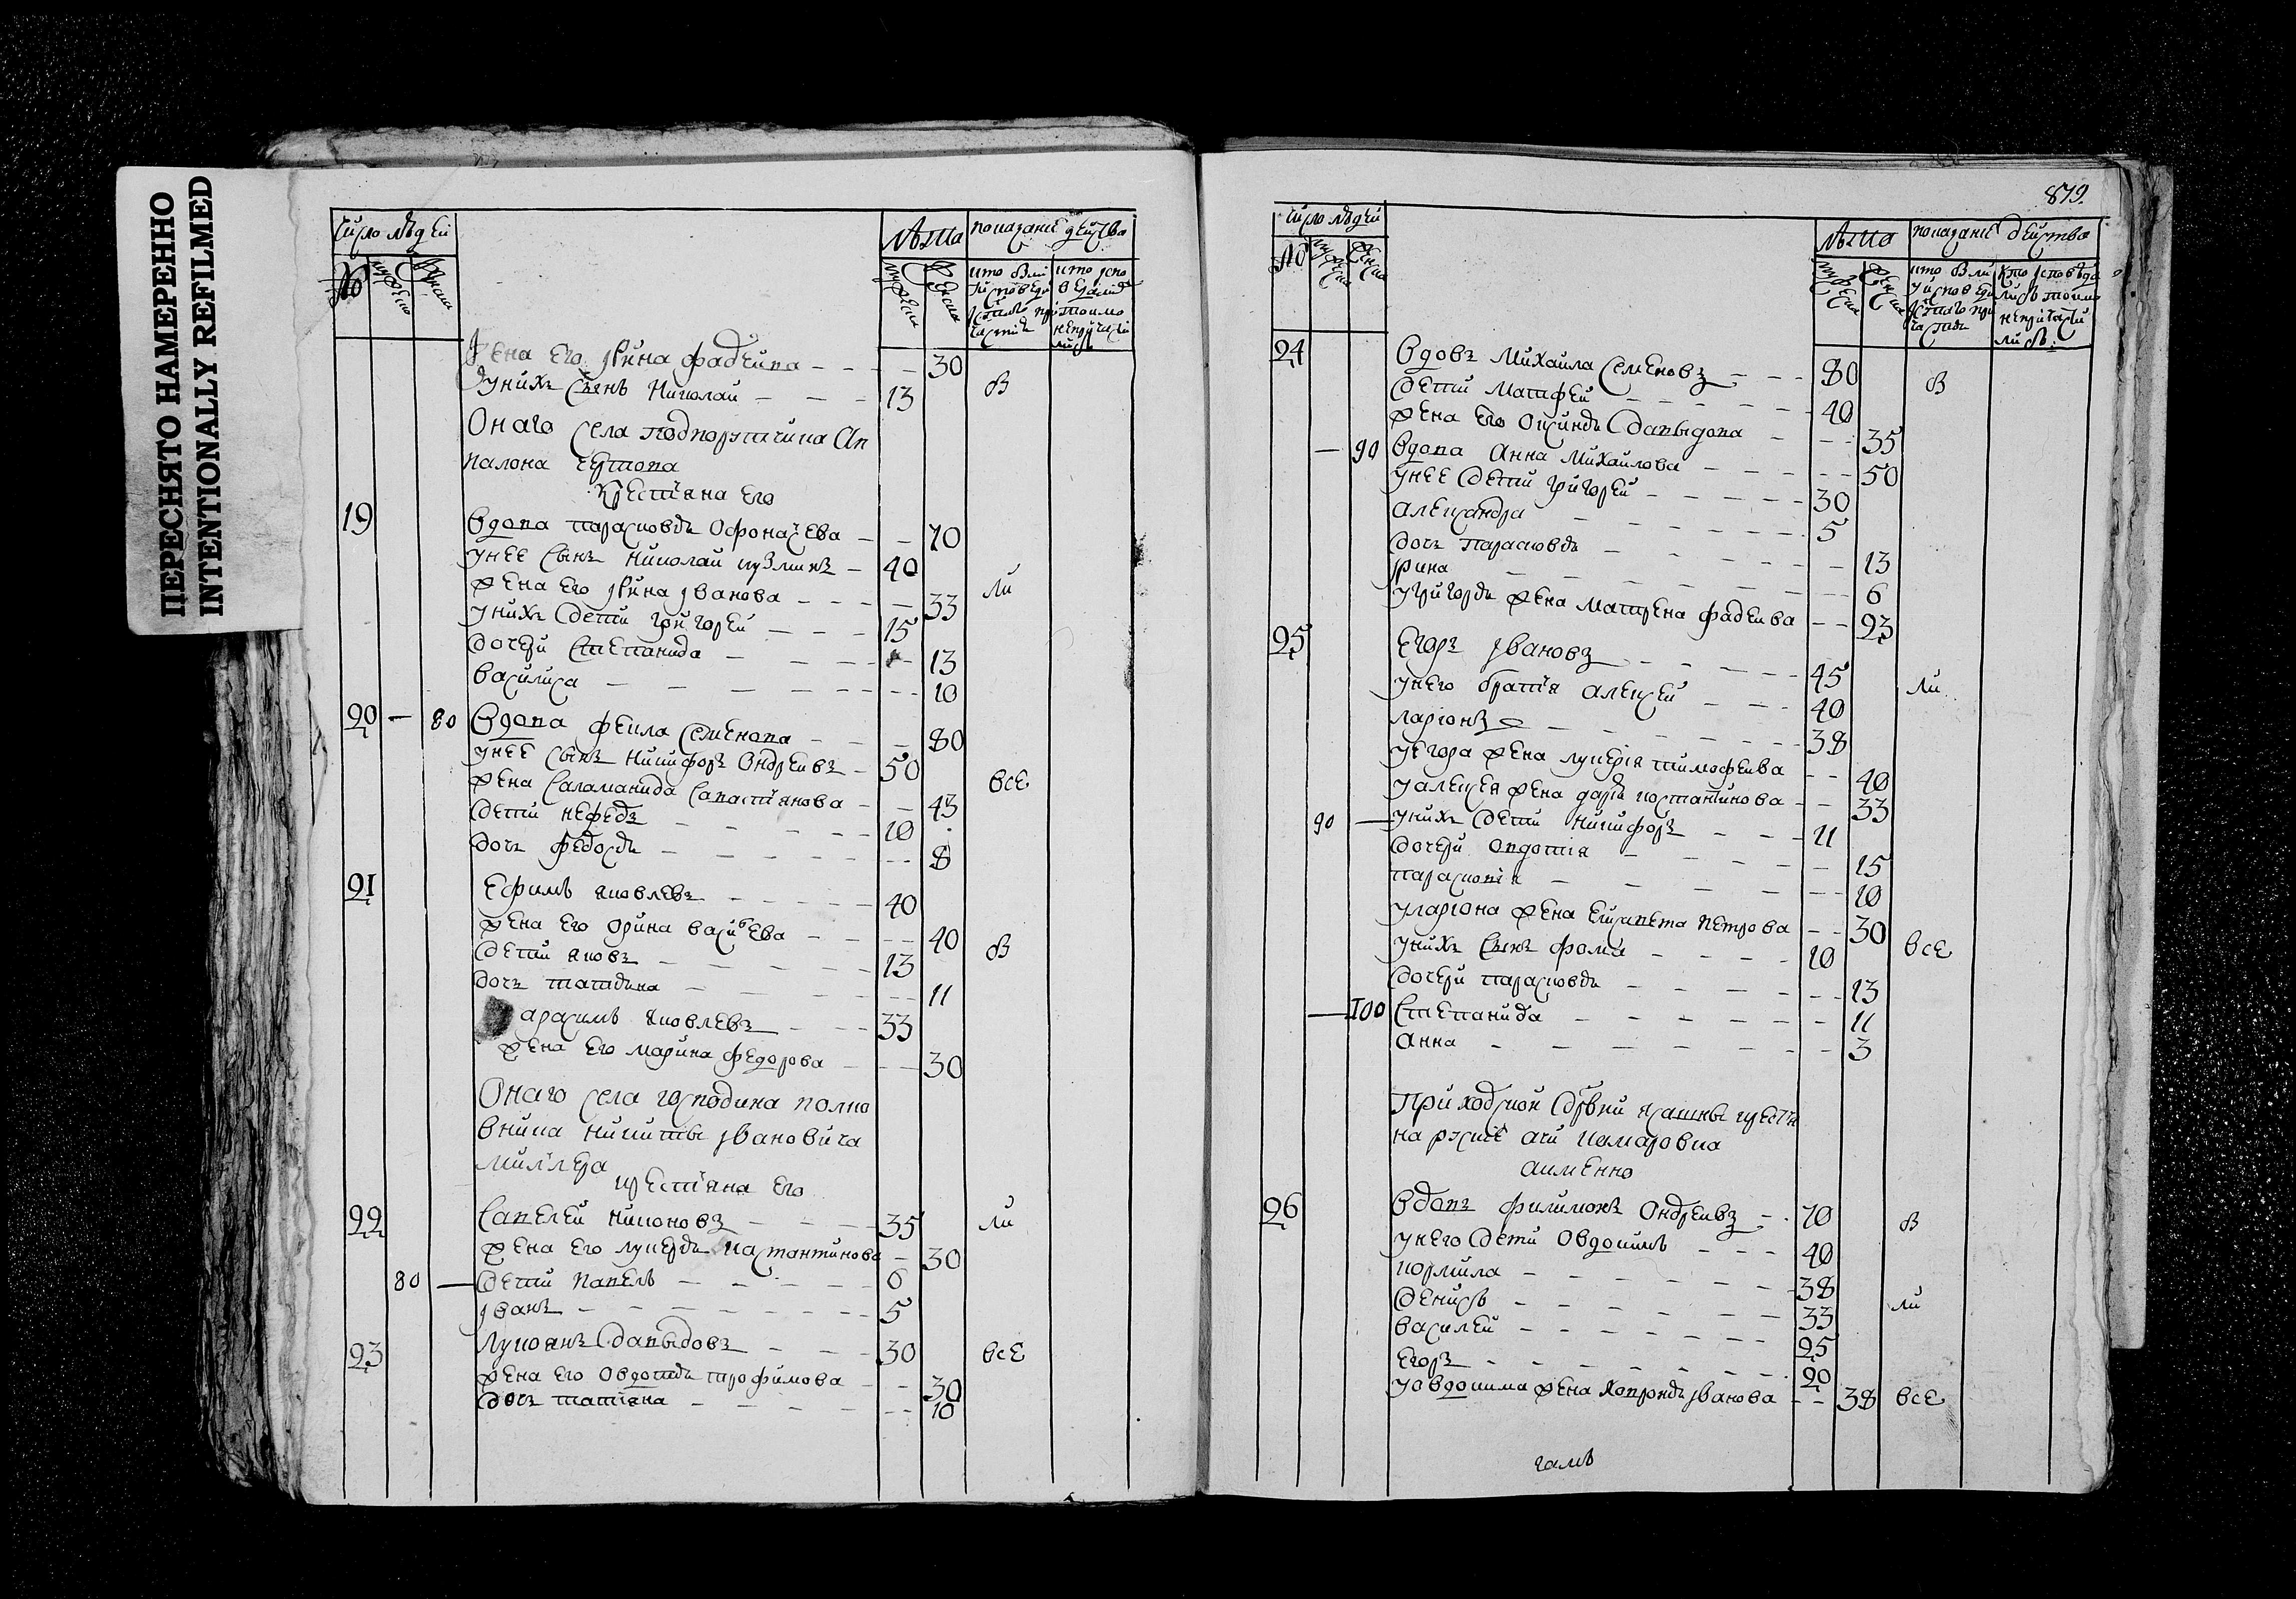 ПЕРЕСНЯТО НАМЕРЕННО
INTENTIONALLY REFILMED
число людей
лѣта
показание действа
№
мужеска
женска
мужеска
женска
жена его Ирина Фадеива 30
у них сынъ Николаи 13 В
Онаго села подпорутчика Ап
палона
крестіяна его
19 Вдова Парасковья Офонасева 70
у нее сынъ Николаи Кузминъ 40
жена его Ирина Иванова 33 ли
у них дети Григореи 15
дочери Степанида 13
Василиса 10
20 — 80 Вдова Фекла Семенова 80
у нее сынъ Никифоръ Ондреивъ 50
жена Саламанида Савастіянова 43 все
дети Нефедъ 10
доч Федосья 8
21 Ефимъ Яковлевъ 40
жена его Орина Васильева 40
дети Яковъ 13 В
доч Татьяна 11
арасимъ Яковлевъ 33
жена его Марина Федорова 30
Онаго села господина полко
вника Никиты Ивановича
Миллера
крестіяна его
22 Савелеи Никоновъ 35 ли
жена его Лукерья Костантинова 30
80 — дети Павелъ 6
Иванъ 5
23 Лукоянъ Давыдовъ 30 все
жена его Овдотья Трофимова 30
доч Татіяна 10
879
число людей
лѣта
показание действа
№
мужеска
женска
мужеска
женска
24 Вдовъ Михаила Семеновъ 80 В
дети Матфеи 40
жена его Оксинья Давыдова 35
— 90 Вдова Анна Михаилова 50
у нее дети Григореи 30
Александра 5
доч Парасковья 13
Ирина 6
у Григорья жена Матрена Фадеива 23
25 Егоръ Ивановъ 45
у него братія Алексеи 40 ли
Ларіонъ 38
у Егора жена Лукерія Тимофеива 40
у Алексея жена Дарья Костантинова 33
90 — у них дети Никифоръ 11
дочери Овдотія 15
Парасковія 10
у Ларіона жена Елисавета Петрова 30
у них сынъ Фома 10 все
дочери Парасковья 13
— 100 Степанида 11
Анна 3
Приходскои дрвни ясашны крестя
на
аименно
26 Вдовъ Филимонъ Ондреивъ 70 В
у него дети Овдокимъ 40
Кормила 38
Денисъ 33 ли
Василеи 25
Егоръ 20
у Овдокима жена Хавронья Иванова 38 все